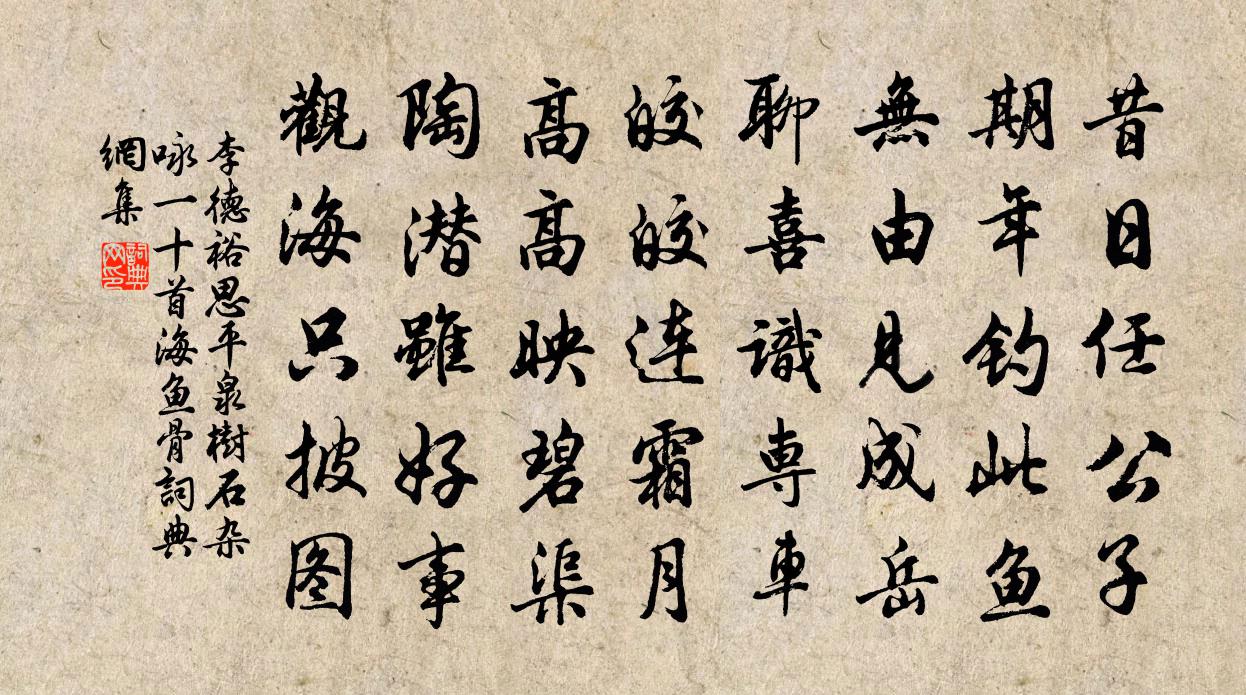 昔日任公子
期年钓此鱼
無由見成岳
聊喜識専車
皎皎连霜月
高高映碧渠
陶潜雖好事
觀海只披图
李德裕思平泉樹石杂
咏一十首海鱼骨詞典
網集
詞典网印